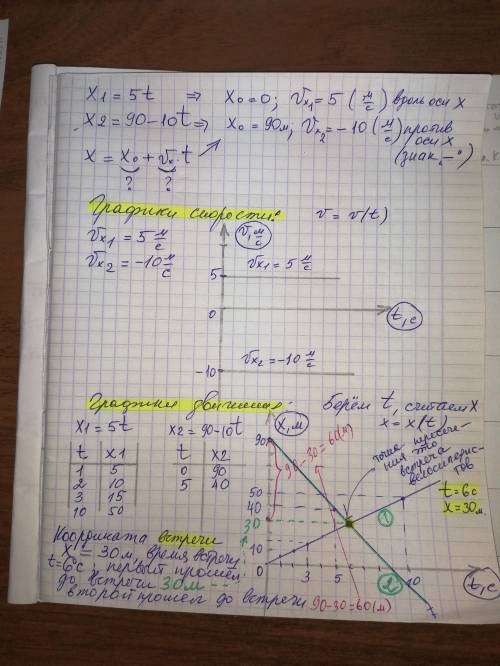 x1 = 5t ⇒ x0 = 0; vx1 = 5 (м/с) вдоль оси x
x2 = 90 - 10t ⇒ x0 = 90м; vx2 = -10 (м/с) против оси x (знак "-")
x = x0 + vx · t
? ?
Графики скорости: v = v(t)
vx1 = 5 м/с
vx2 = -10 м/с
v, м/с
vx1 = 5 м/с
5
0
t, с
vx2 = -10 м/с
-10
Графики движения:
берём t, считаем x
x = x(t)
x1 = 5t
t x1
1 5
2 10
3 15
10 50
x2 = 90 - 10t
t x2
0 90
5 40
x, м
90
50
40
30
10
0
5
10
t, с
90-30=60(м)
точка пересечения это встреча велосипедистов
t = 6с
x = 30м
1
2
Координата встречи
x = 30м, время встречи
t = 6с, первый прошёл
до встречи 30м
второй прошел до встречи 90-30=60(м)